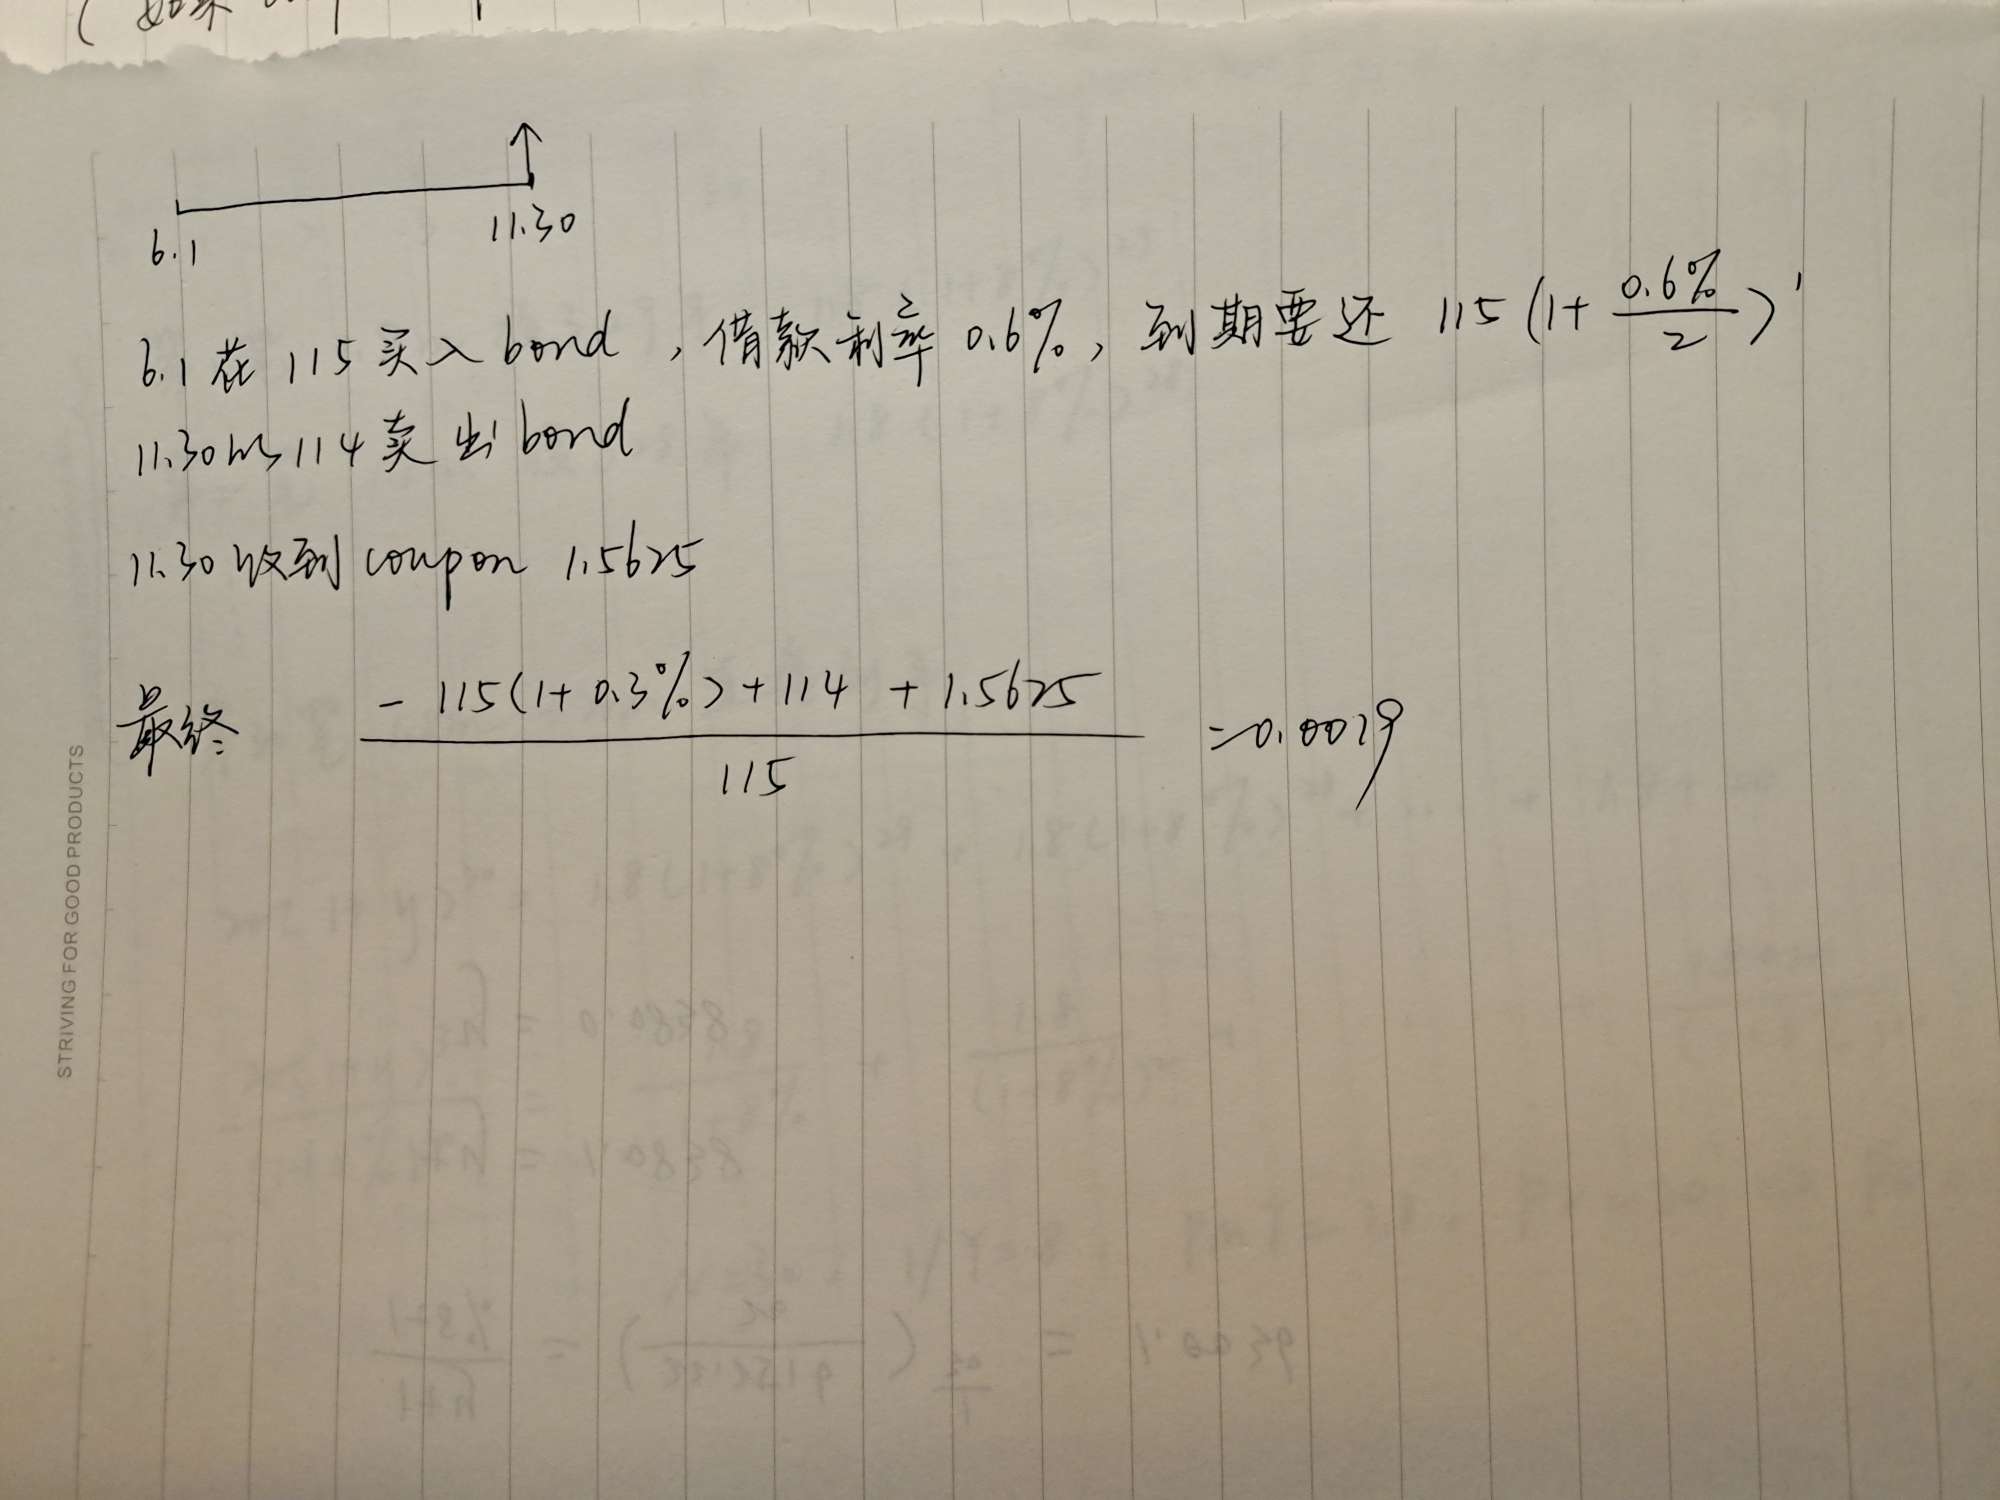 ( 如果
6.1 11.30
6.1 在 115 买入 bond , 借款利率 0.6%, 到期要还 115 (1+ 0.6%/2)¹
11.30以114卖出bond
11.30收到 coupon 1.5625
最终 - 115(1+0.3%)+114 + 1.5625 / 115 = 0.0019
STRIVING FOR GOOD PRODUCTS